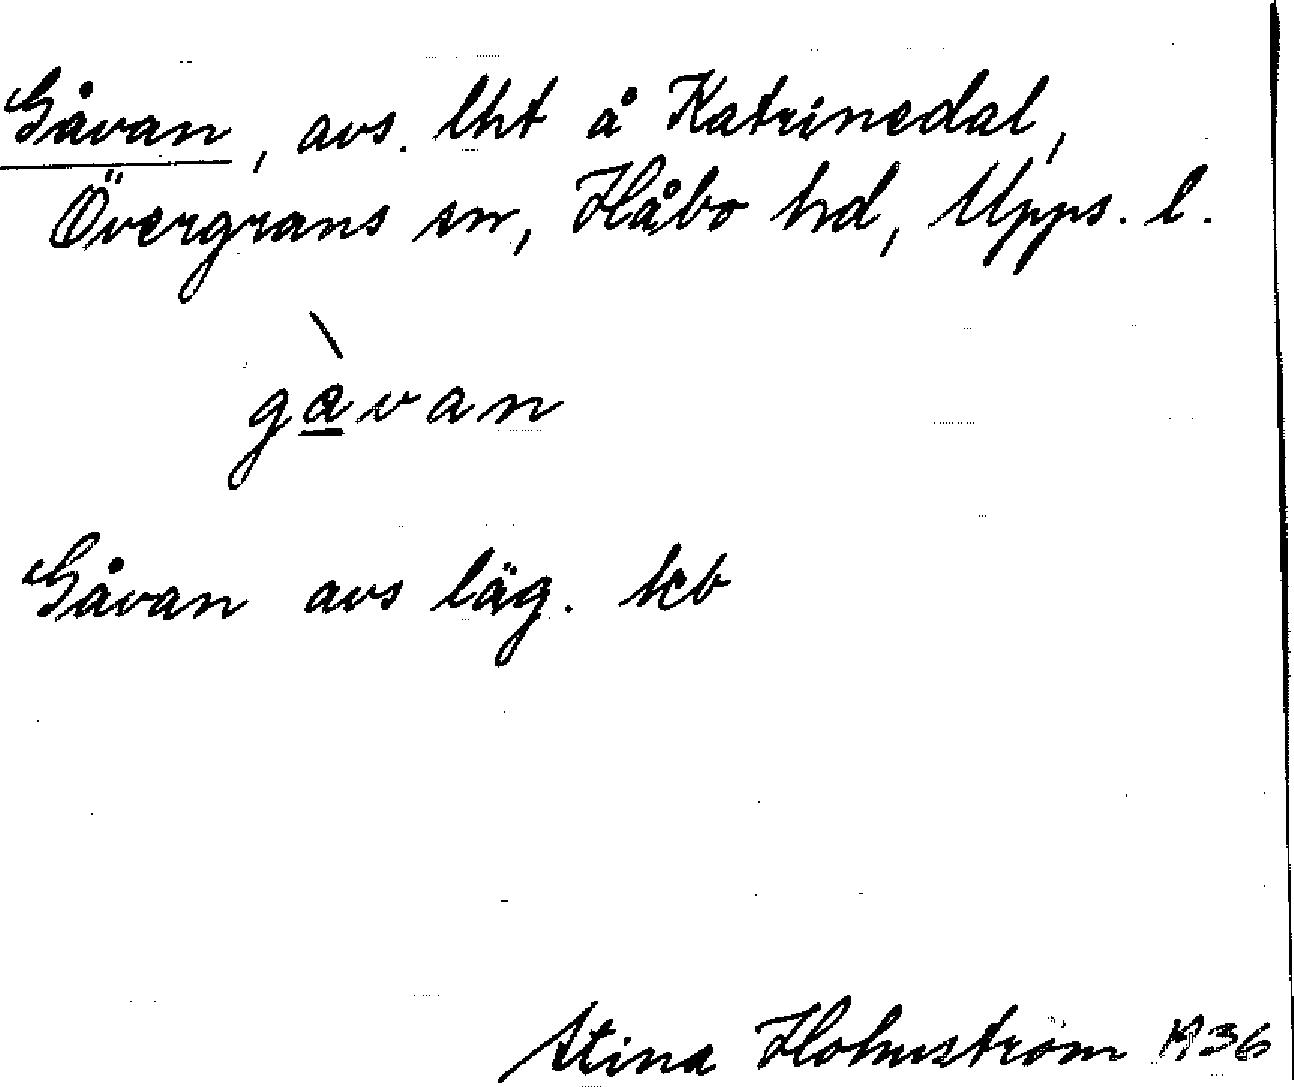 Gåvan, avs. lht å Katrinedal,
Övergrans sn, Håbo hd, Upps. l.
gàvan
Gåvan avs läg. kb
Stina Holmström 1936